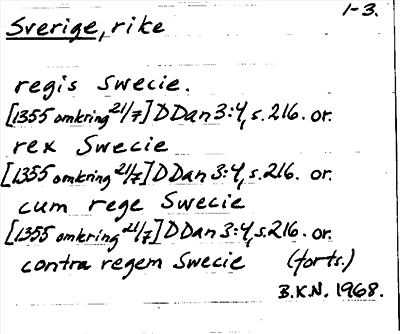 1-3.
Sverige, rike
regis Swecie.
[1355 omkring 21/7] DDan 3:4, s. 216. or.
rex Swecie
[1355 omkring 21/7] DDan 3:4, s. 216. or.
cum rege Swecie
[1355 omkring 21/7] DDan 3:4, s. 216. or.
contra regem Swecie (forts.)
B.K.N. 1968.